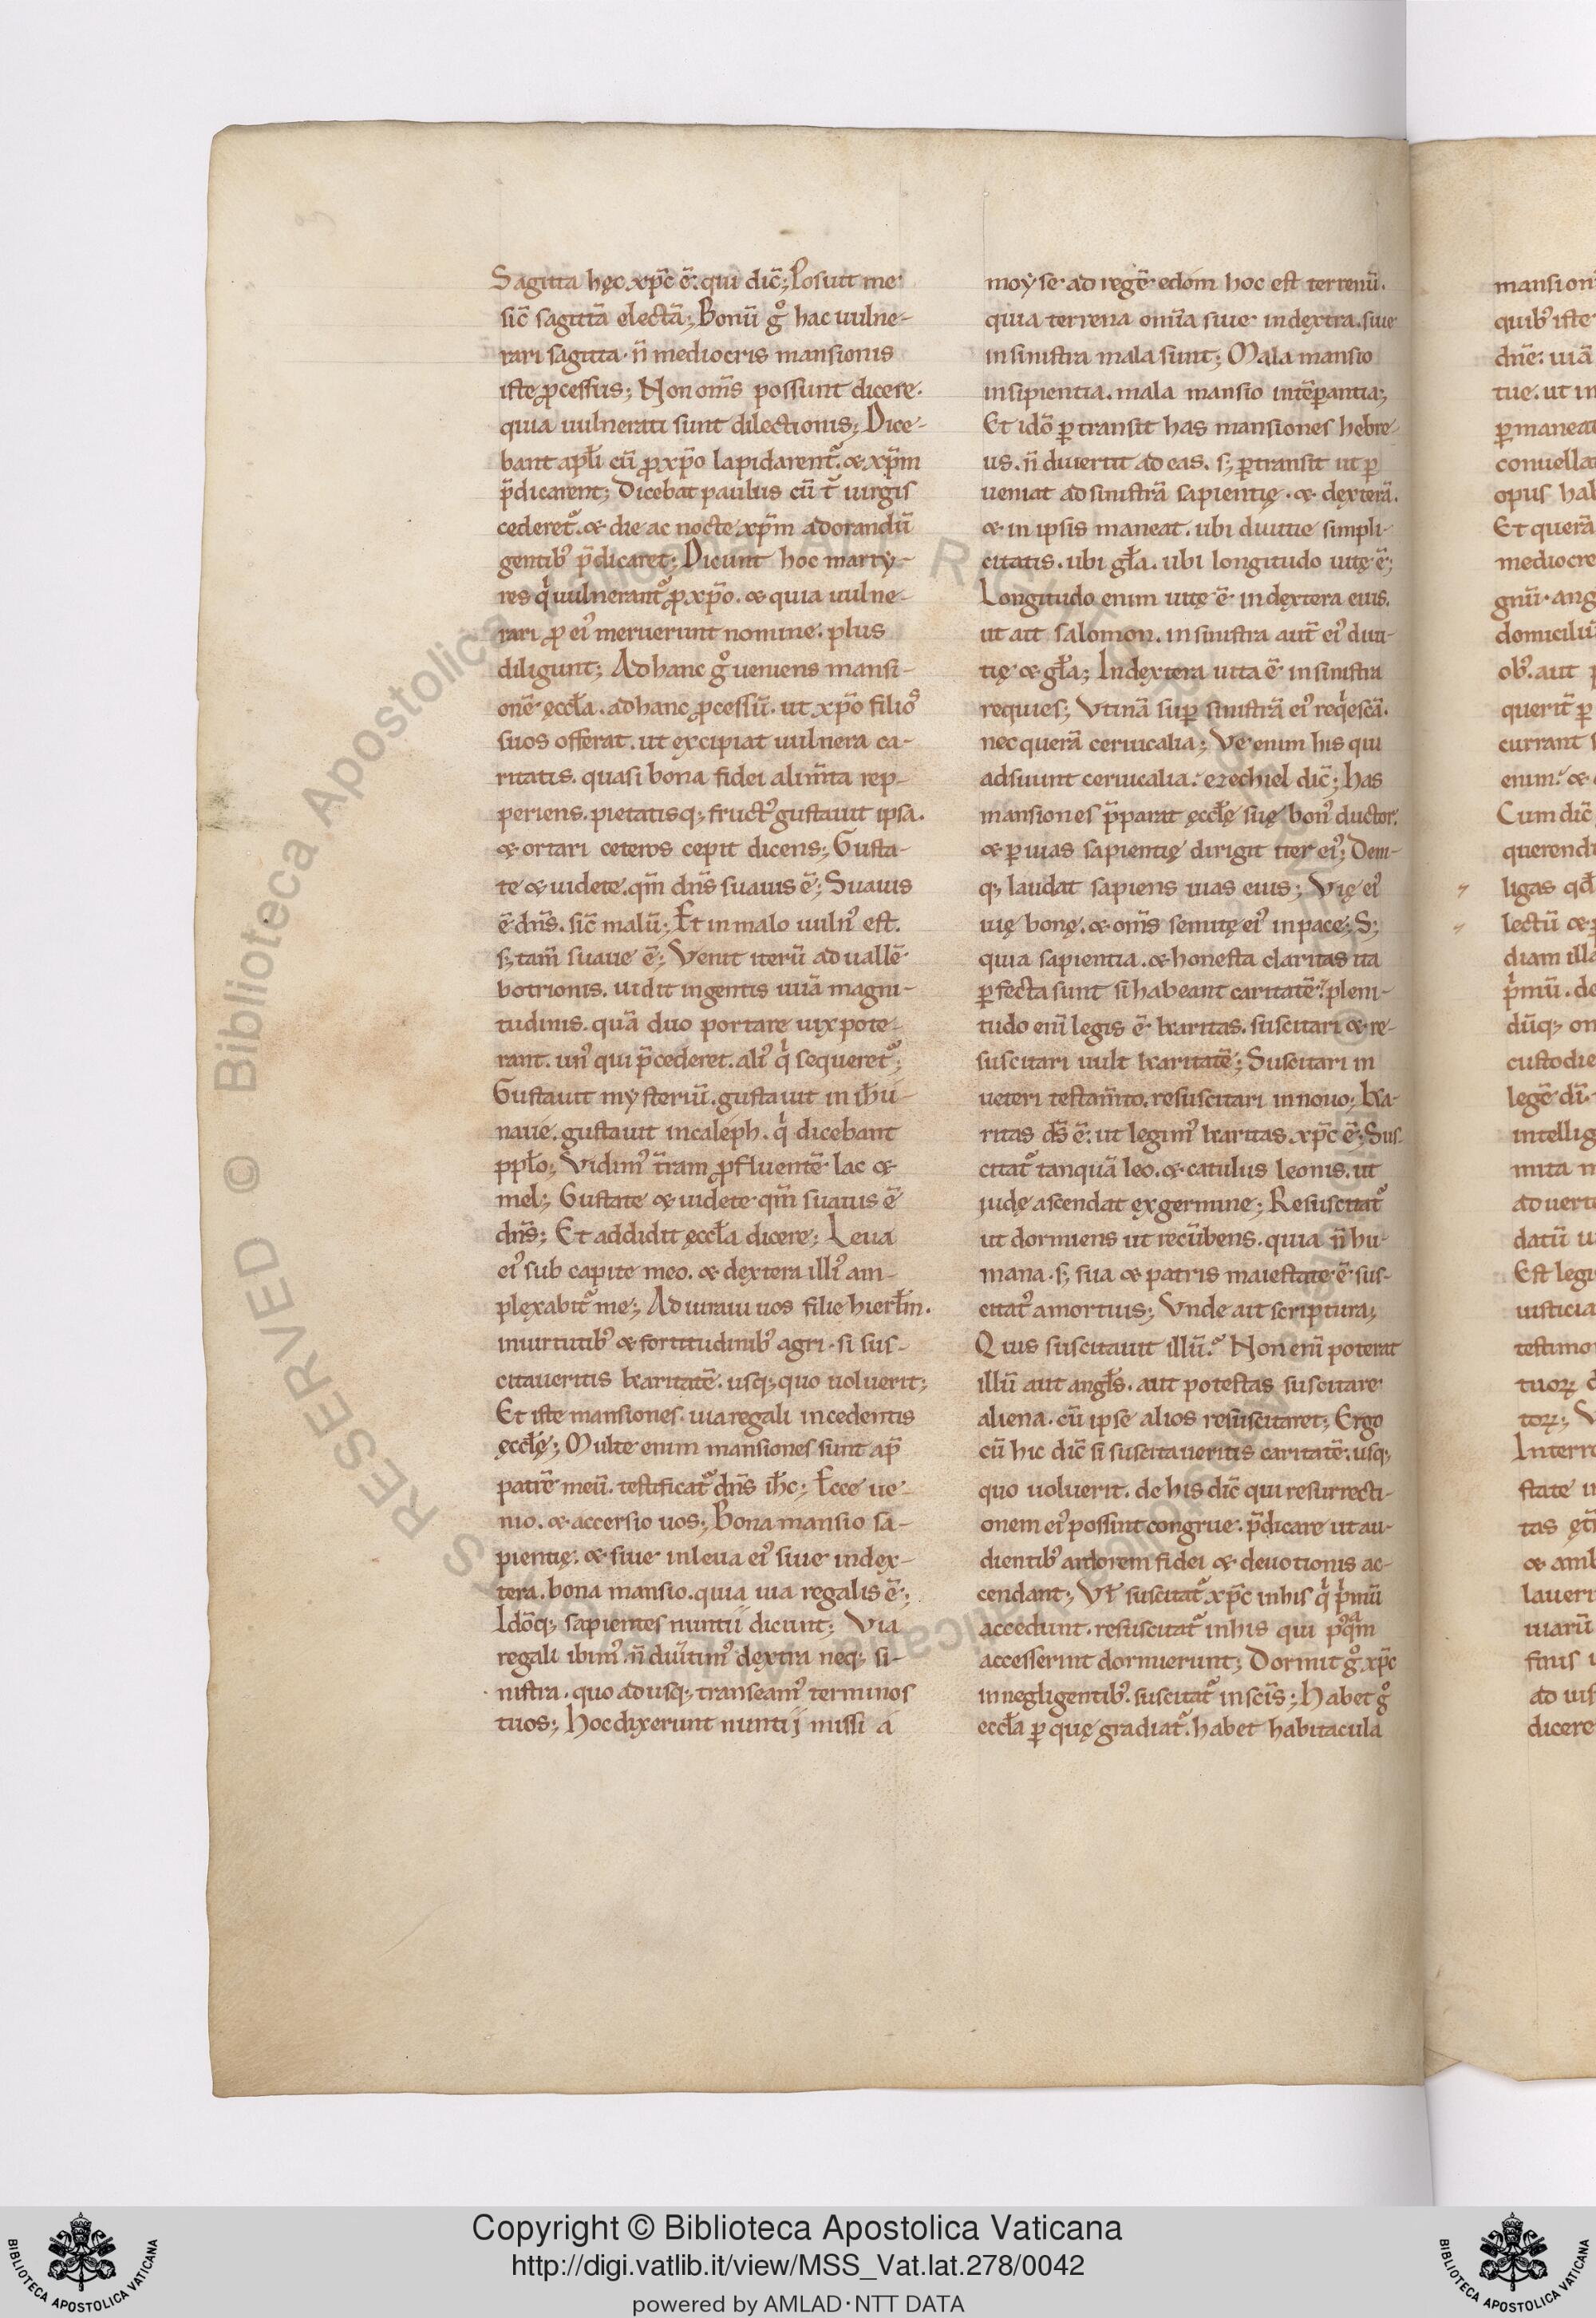 Sagitta hęc xp̄c ē. qui dic̄; Posuit me
sic̄ sagittā electā; Bonū gͦ hac uulne-
rari sagitta. n̄ mediocris mansionis
iste ꝓcessus; Non om̄s possunt dicere.
quia uulnerati sunt dilectionis; Dice-
bant apłi cū ꝓ xp̄o lapidarent᷑. & xp̄m
p̄dicarent; Dicebat paulus cū t᷑ uirgis
cederet᷑. & die ac nocte xp̄m adorandū
gentib᷒ p̄dicaret; Dicunt hoc marty-
res qͥ uulnerant᷑ ꝓ xp̄o. & quia uulne-
rari ꝓ ei᷒ meruerunt nomine. plus
diligunt; Ad hanc gͦ ueniens mansi-
onē ęccła. ad hanc ꝓcessū. ut xp̄o filio᷒
suos offerat. ut excipiat uulnera ca-
ritatis. quasi bona fidei alim̄ta rep-
periens. pietatisq; fruct᷒ gustauit ipsa.
& ortari ceteros cepit dicens; Gusta-
te & uidete. qm̄ dn̄s suauis ē; Suauis
ē dn̄s. sic̄ malū; Et in malo uuln᷒ est.
s; tam̄ suaue ē; Venit iterū ad uallē
botrionis. uidit ingentis uuā magni-
tudinis. quā duo portare uix pote-
rant. un᷒ qui p̄cederet. ali᷒ qͥ sequeret᷑;
Gustauit mysteriū. gustauit in ih̄u
naue. gustauit in caleph. qͥ dicebant
ppło; Vidim᷒ t̄ram ꝓfluentē lac &
mel; Gustate & uidete qm̄ suauis ē
dn̄s; Et addidit ęccła dicere; Leua
ei᷒ sub capite meo. & dextera illi᷒ am-
plexabit᷑ me; Ad iuraui uos filie hierłm.
in uirtutib᷒ & fortitudinib᷒ agri. si sus-
citaueritis karitatē. usq; quo uoluerit;
Et iste mansiones. uia regali incedentis
ęccłę; Multe enim mansiones sunt ap̄
patrē meū. testificat᷑ dn̄s ih̄c; Ecce ue
nio. & accersio uos; Bona mansio sa-
pientię. & siue in leua ei᷒ siue in dex-
tera. bona mansio. quia uia regalis ē;
Idōq; sapientes nuntii dicunt; Via
regali ibim᷒. n̄ duītim᷒ dextra neq; si-
nistra. quo adusq; transeam᷒ terminos
tuos; Hoc dixerunt nuntij missi a
moyse ad regē edom hoc est terrenū.
quia terrena om̄ia siue in dextra. siue
in sinistra mala sunt; Mala mansio
insipientia. mala mansio intēꝑantia;
Et idō ꝑtransit has mansiones hebre-
us. n̄ diuertit ad eas. s; ꝑtransit ut ꝑ
ueniat ad sinistrā sapientię. & dexterā.
& in ipsis maneat. ubi diuitie simpli-
citatis. ubi gła. ubi longitudo uitę ē;
Longitudo enim uitę ē in dextera eius.
ut ait salomon. in sinistra aut̄ ei᷒ diui-
tię & gła; In dextera uita ē in sinistra
requies; Vtinā suꝑ sinistrā ei᷒ reqͥescā.
nec querā ceruicalia; Ve enim his qui
adsuunt ceruicalia. ezechiel dic̄; has
mansiones p̄parat ęccłę suę bon᷒ ductor.
& ꝑ uias sapientię dirigit iter ei᷒; Deni-
q; laudat sapiens uias eius; Vię ei᷒
uię bonę. & om̄s semitę ei᷒ in pace; S;
quia sapientia. & honesta claritas ita
ꝑfecta sunt si habeant caritatē. pleni-
tudo eni᷒ legis ē karitas. suscitari & re-
suscitari uult karitatē; Suscitari in
ueteri testam̄to. resuscitari in nouo; ka-
ritas ds̄ ē. ut legim᷒ karitas xp̄c ē; Sus-
citat᷑ tanquā leo. & catulus leonis. ut
judę ascendat ex germine; Resuscitat᷑
ut dormiens ut recūbens. quia n̄ hu-
mana. s; sua & patris maiestate ē sus-
citat᷒ a mortuis; Vnde ait scriptura;
Quis suscitauit illū? Non enī poterat
illū aut angłs. aut potestas suscitare
aliena. cū ipse alios resuscitaret; Ergo
cū hic dic̄ si suscitaueritis caritatē. usq;
quo uoluerit. de his dic̄ qui resurrecti-
onem ei᷒ possint congrue. p̄dicare ut au-
dientib᷒ ardorem fidei & deuotionis ac-
cendant; Vł suscitat᷑ xp̄c in his qͥ pͥmū
accedunt. resuscitat᷑ in his qui p᷒qͣm
accesserint dormierunt; Dormit gͦ xp̄c
in negligentib᷒. suscitat᷑ in sc̄is; Habet gͦ
eccła ꝑ quę gradiat᷑. habet habitacula
Copyright © Biblioteca Apostolica Vaticana
http://digi.vatlib.it/view/MSS_Vat.lat.278/0042
powered by AMLAD·NTT DATA